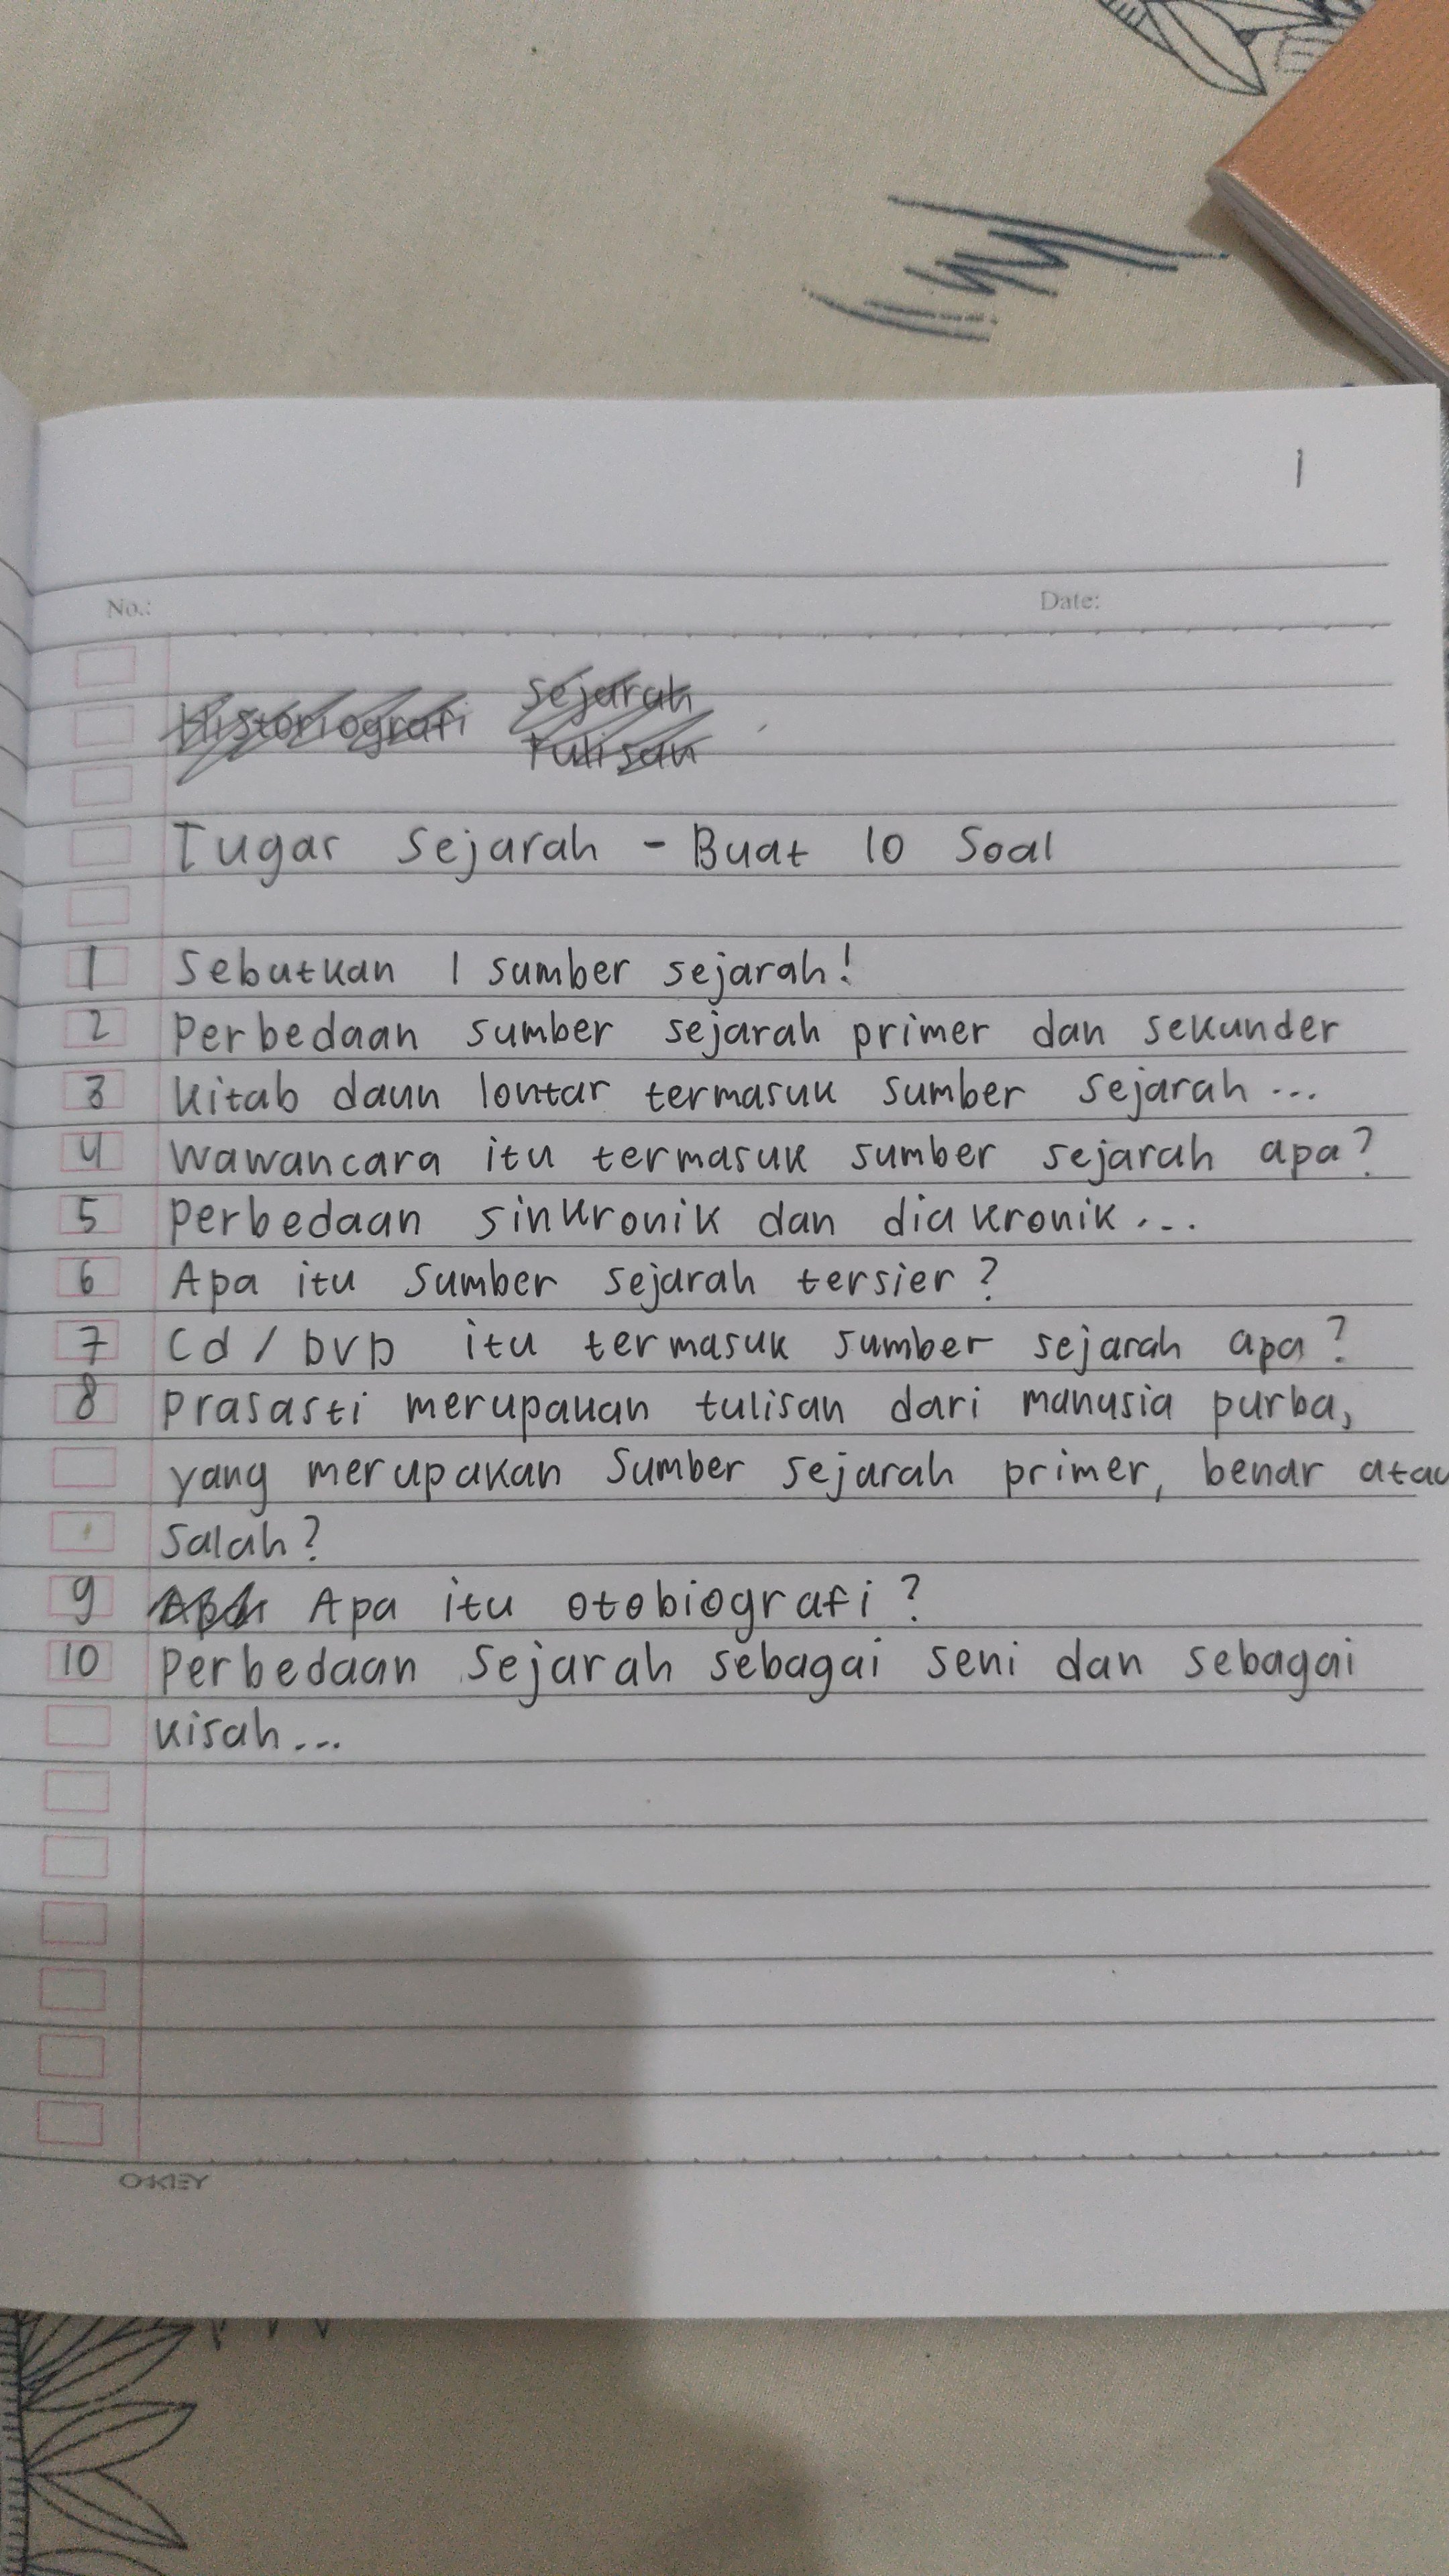 1
No.:
Date:
Historiografi
Sejarah
Tulisan
Tugas Sejarah - Buat 10 Soal
1 Sebutkan 1 sumber sejarah!
2 Perbedaan sumber sejarah primer dan sekunder
3 kitab daun lontar termasuk sumber sejarah ...
4 wawancara itu termasuk sumber sejarah apa?
5 perbedaan sinkronik dan diakronik ...
6 Apa itu sumber sejarah tersier?
7 Cd / DVD itu termasuk sumber sejarah apa?
8 prasasti merupakan tulisan dari manusia purba,
yang merupakan sumber sejarah primer, benar atau
salah?
9 Apa itu otobiografi?
10 perbedaan sejarah sebagai seni dan sebagai
kisah ...
O-KEY